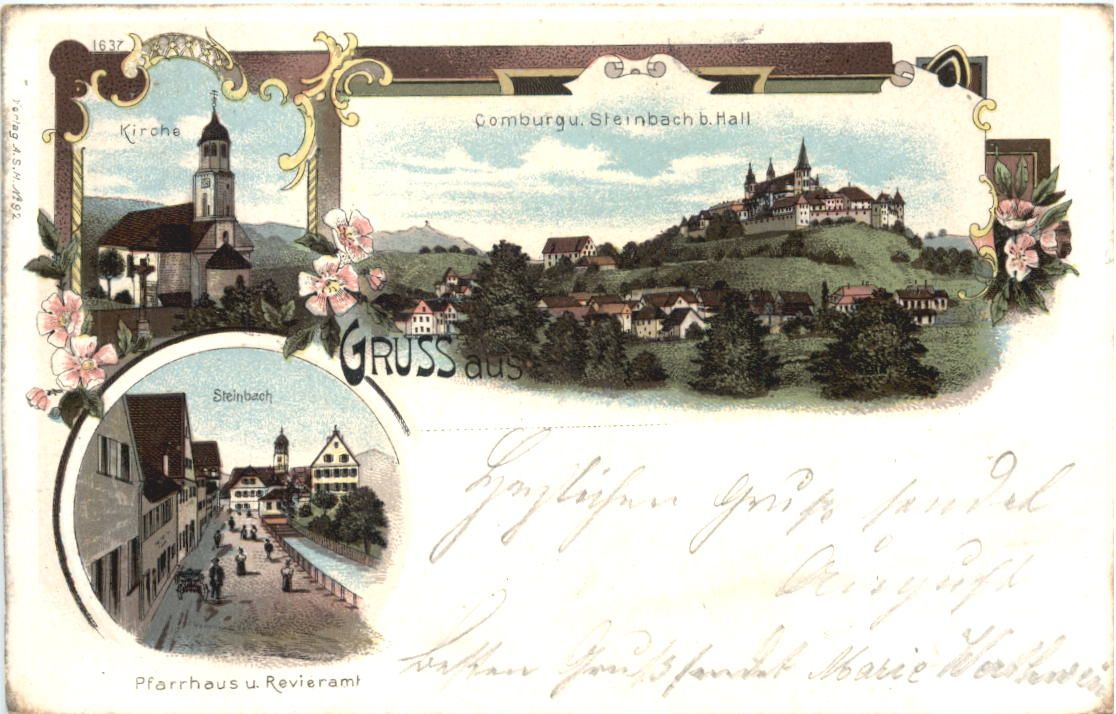 1637
Kirche
Comburg u. Steinbach b. Hall
Verlag A.S.H. 1192
GRUSS aus
Steinbach
Pfarrhaus u. Revieramt
Herzlichen Gruß sendet
August
Besten Gruß sendet Marie